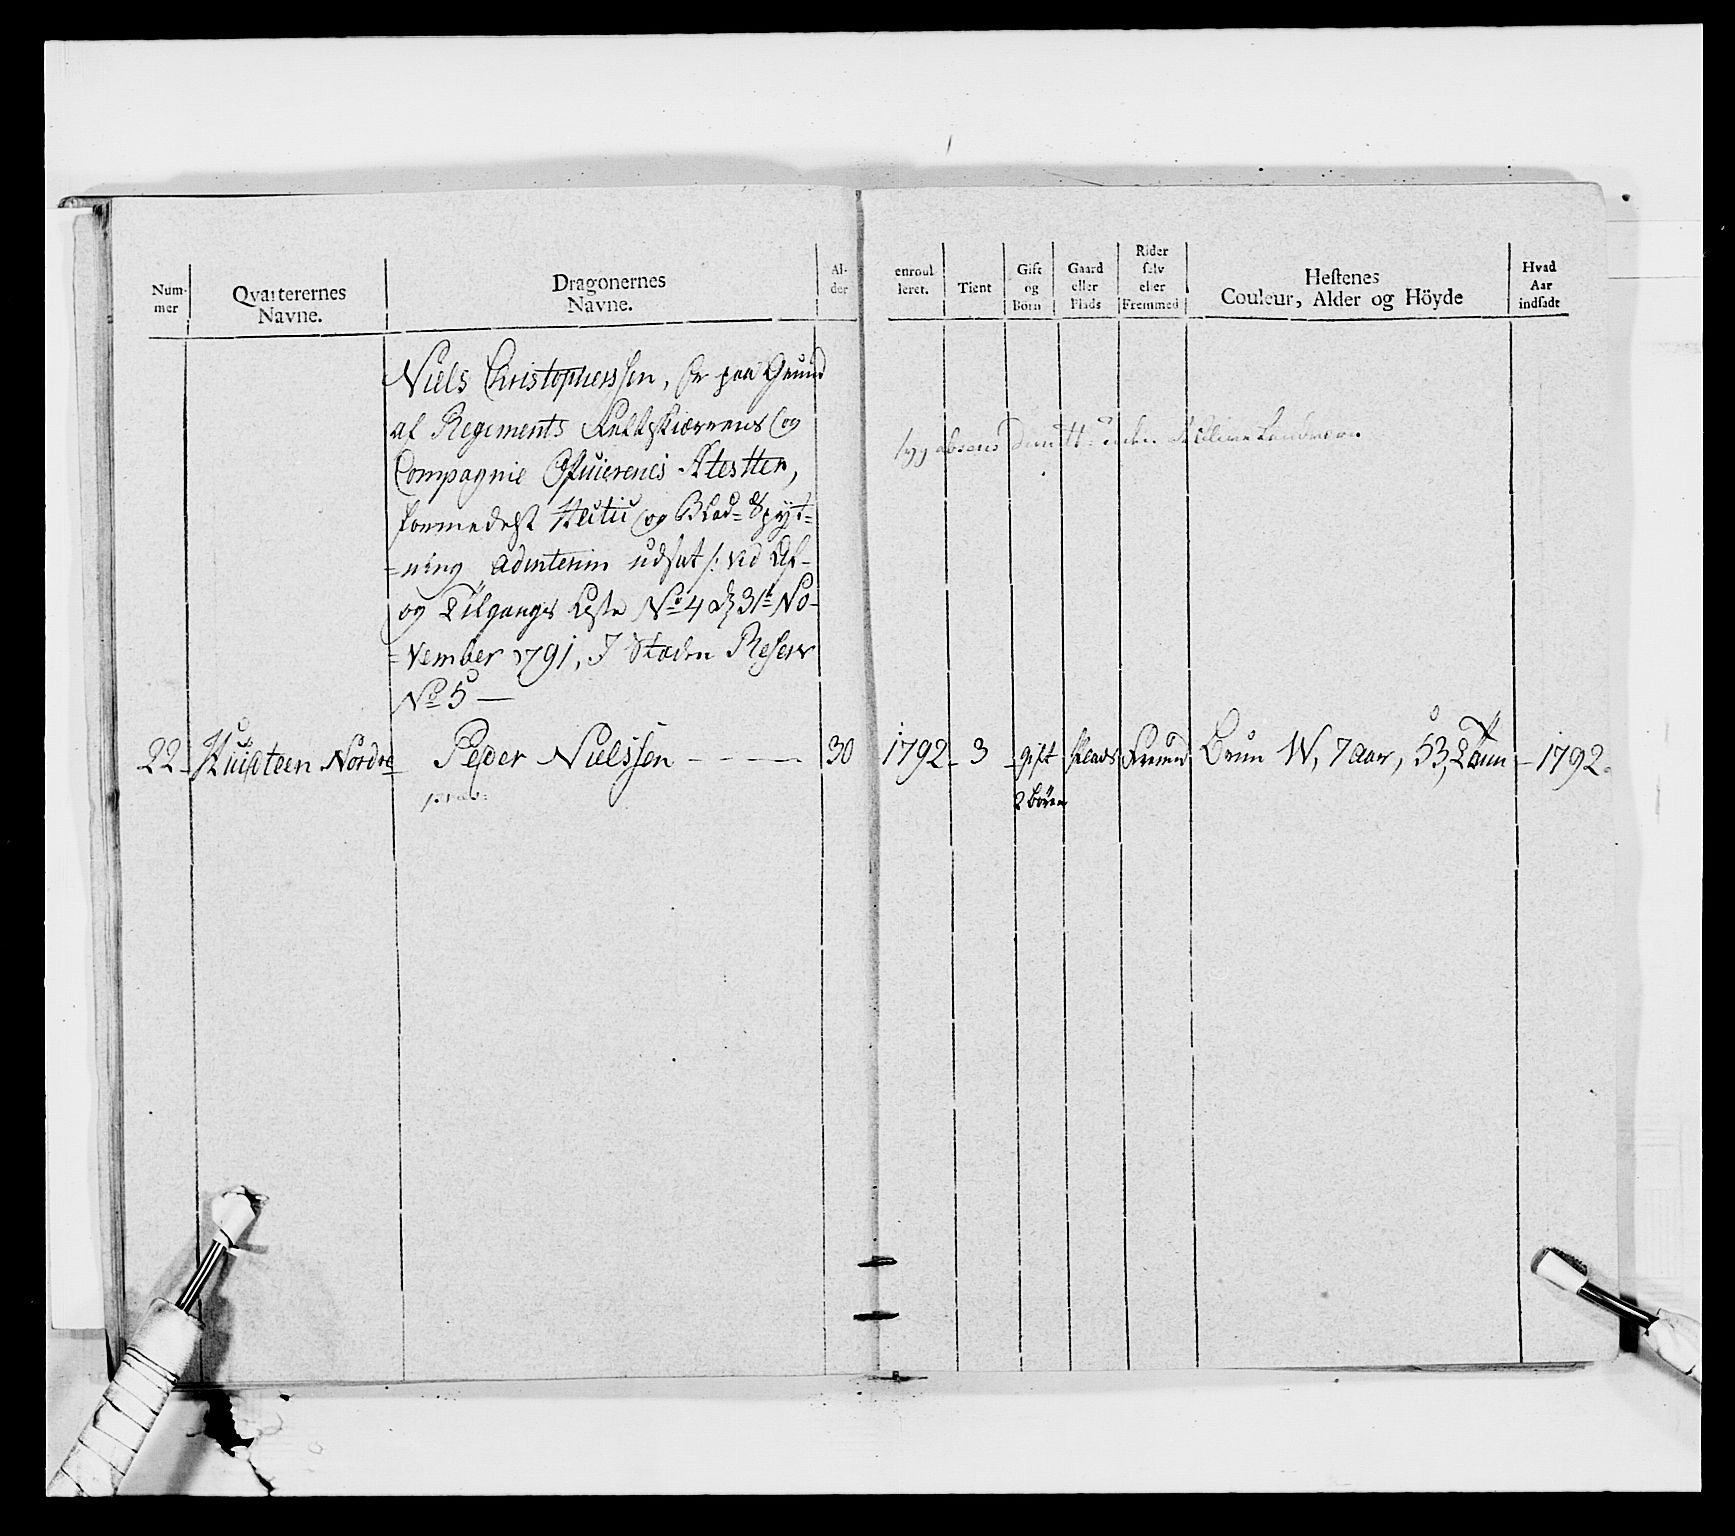 Num-
mer
Qvarterernes
Navne.
Dragonernes
Navne.
Al-
der
enroul-
leret.
Tient
Gift
og
Börn
Gaard
eller
Plads
Rider
selv
eller
Fremmed
Hestenes
Couleur, Alder og Höyde
Hvad
Aar
indsadt
Niels Christopherssen, er paa Grund
af Regiments Feltskiærerens og
Compagnie Officerenes Atester,
formedelst Hectic og Blod-Spyt-
-ning adinterim udsat /: ved Af-
og Tilgangs Liste No 4 31 No-
-vember 1791, I Steden Reserv
No 5 —
22 Nordre Peder Nielssen - - - - 30 1792 - 3 - gift Plads Fremd Brun W, 7 Aar, 53, - 1792.
2 Börn